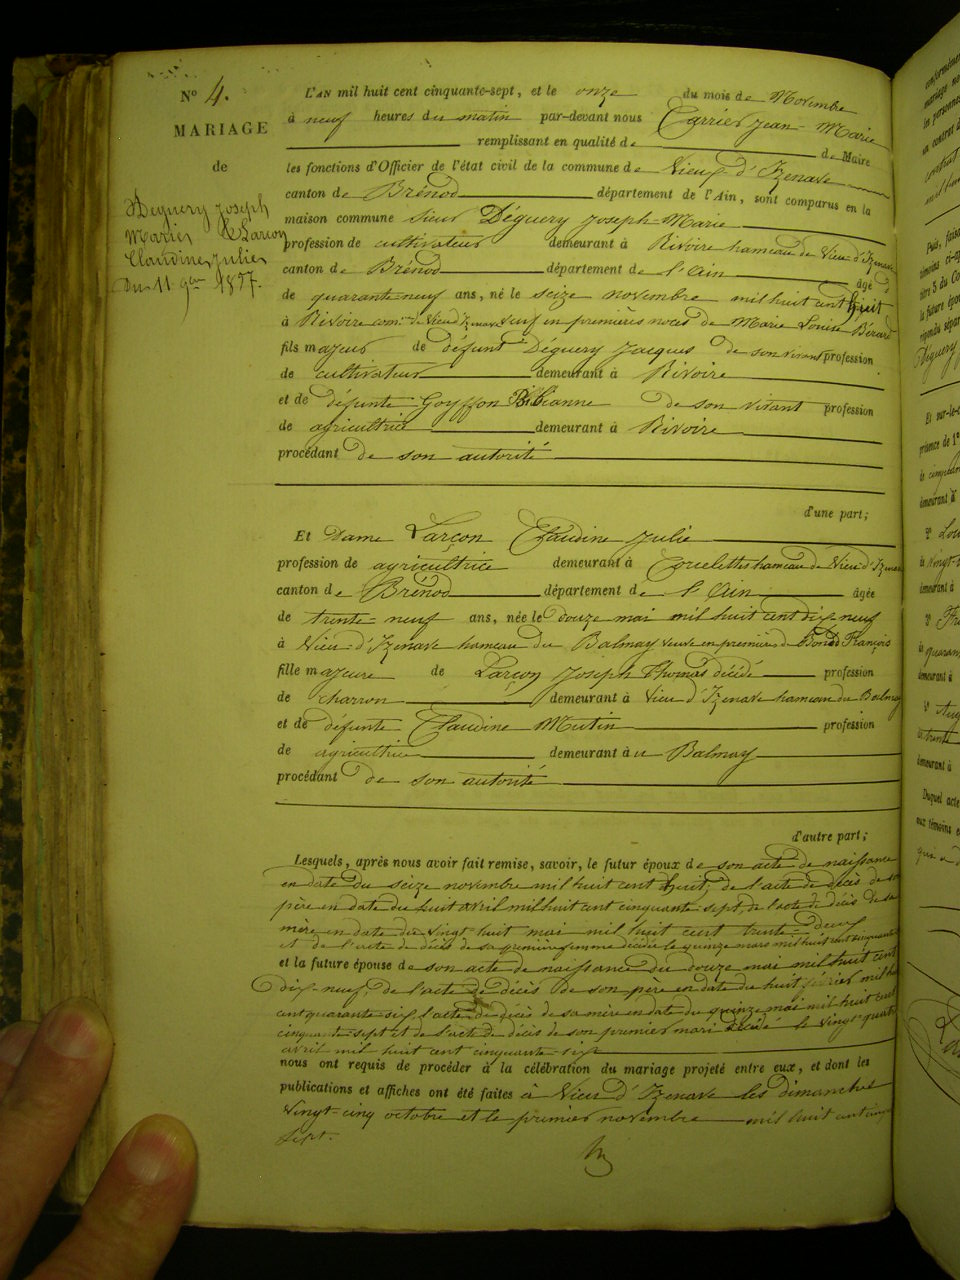 N° 4.
MARIAGE
de
Déguery Joseph
Marie, & Larçon
Claudine Julie
Du 11 9bre 1857.
L'AN mil huit cent cinquante-sept, et le onze du mois de Novembre
à neuf heures du matin par-devant nous Carrier Jean-Marie
remplissant en qualité de de Maire
les fonctions d'Officier de l'état civil de la commune de Vieux d'Izenave
canton de Brénod département de l'Ain, sont comparus en la
maison commune sieur Déguery Joseph-Marie
profession de cultivateur demeurant à Rivoire hameau de Vieu d'Izenave
canton de Brénod département de l'Ain âgé
de quarante-neuf ans, né le seize novembre mil huit cent huit
à Rivoire com.ne de Vieu d'Izenave veuf en premières noces de Marie Louise Bérard
fils majeur de défunt Déguery Jacques de son vivant profession
de cultivateur demeurant à Rivoire
et de défunte Goyffon Bibianne de son vivant profession
de agricultrice demeurant à Rivoire
procédant de son autorité
d'une part;
Et Dame Larçon Claudine Julie
profession de agricultrice demeurant à hameau de Vieu d'Izenave
canton de Brénod département de l'Ain âgée
de trente-neuf ans, née le douze mai mil huit cent dix-neuf
à Vieu-d'Izenave hameau du Balmay veuve en premières de François
fille majeure de Larçon Joseph Thomas décédé profession
de charron demeurant à Vieu d'Izenave hameau du Balmay
et de défunte Claudine Mutin profession
de agricultrice demeurant à Balmay
procédant de son autorité
d'autre part;
Lesquels, après nous avoir fait remise, savoir, le futur époux de son acte de naissance
en date du seize novembre mil huit cent huit, de l'acte de décès de son
père en date du huit avril mil huit cent cinquante-sept, de l'acte de décès de sa
mère en date du vingt-huit mai mil huit cent trente-deux
et de l'acte de décès de sa première femme décédée le quinze mars mil huit cent cinquante
et la future épouse de son acte de naissance du douze mai mil huit cent
dix-neuf, de l'acte de décès de son père en date du huit février mil huit
cent quarante-six, l'acte de décès de sa mère en date du quinze mai mil huit cent
cinquante-sept et de l'acte de décès de son premier mari décédé le vingt-quatre
avril mil huit cent cinquante-six
nous ont requis de procéder à la célébration du mariage projeté entre eux, et dont les
publications et affiches ont été faites à Vieu d'Izenave les dimanches
vingt-cinq octobre et le premier novembre mil huit cent cinquante
sept.